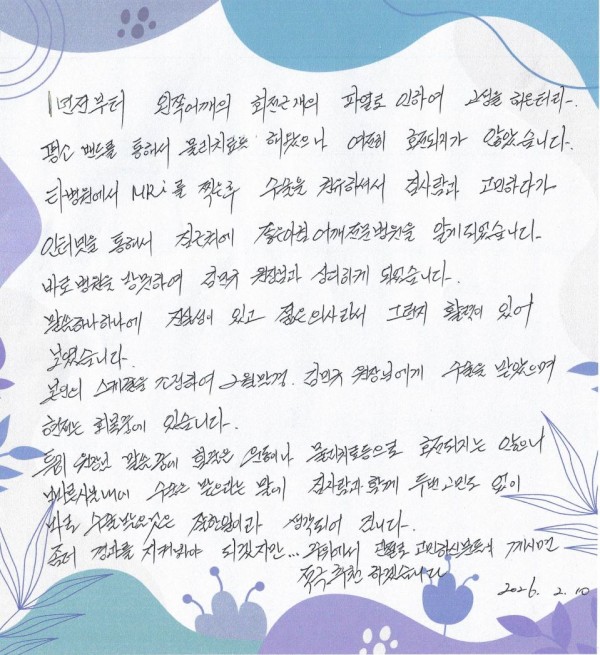 1년전부터 왼쪽어깨의 회전근개의 파열로 인하여 고생을 하은터라.
평소 밴드를 통해서 물리치료로 해왔으나 여전히 호전되지가 않았습니다.
타병원에서 MRi를 찍은후 수술을 권유하셔서 집사람과 고민하다가
인터넷을 통해서 집근처에 좋은아침어깨전문병원을 알게되었습니다.
바로 병원을 방문하여 김민국 원장님과 상의하게 되었습니다.
말씀하나하나에 진실성이 있고 젊은의사라서 그런지 활력이 있어
보였습니다.
본인의 스케줄을 조정하여 2월말경. 김민국 원장님에게 수술을 받았으며
현재는 회복중에 있습니다.
특히 원장님 말씀중에 운동이나 물리치료등으로 호전되지는 않으니
수술을 받으라는 말에 집사람과 함께 두번 고민도 없이
바로 수술받은것은 잘한일이라 생각되어 집니다.
좀더 경과를 지켜봐야 되겠지만... 주위에서 고민하신분들이 계시면
적극추천 하겠습니다
2026. 2. 10